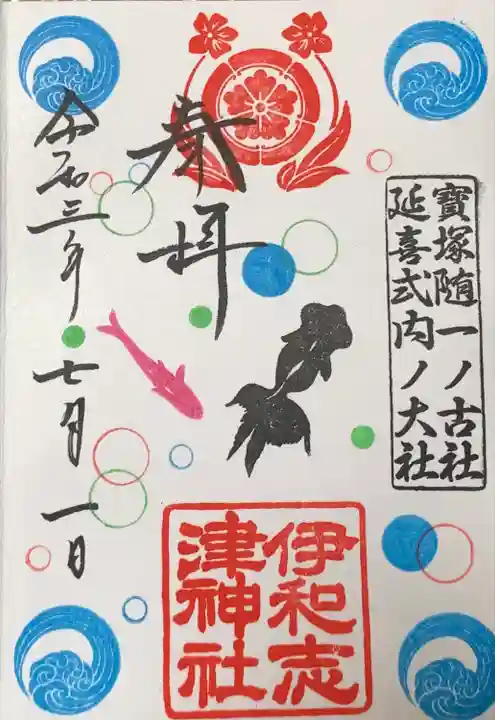 寳塚随一ノ古社
延喜式内ノ大社
奉拝
令和三年七月一日
伊和志
津神社